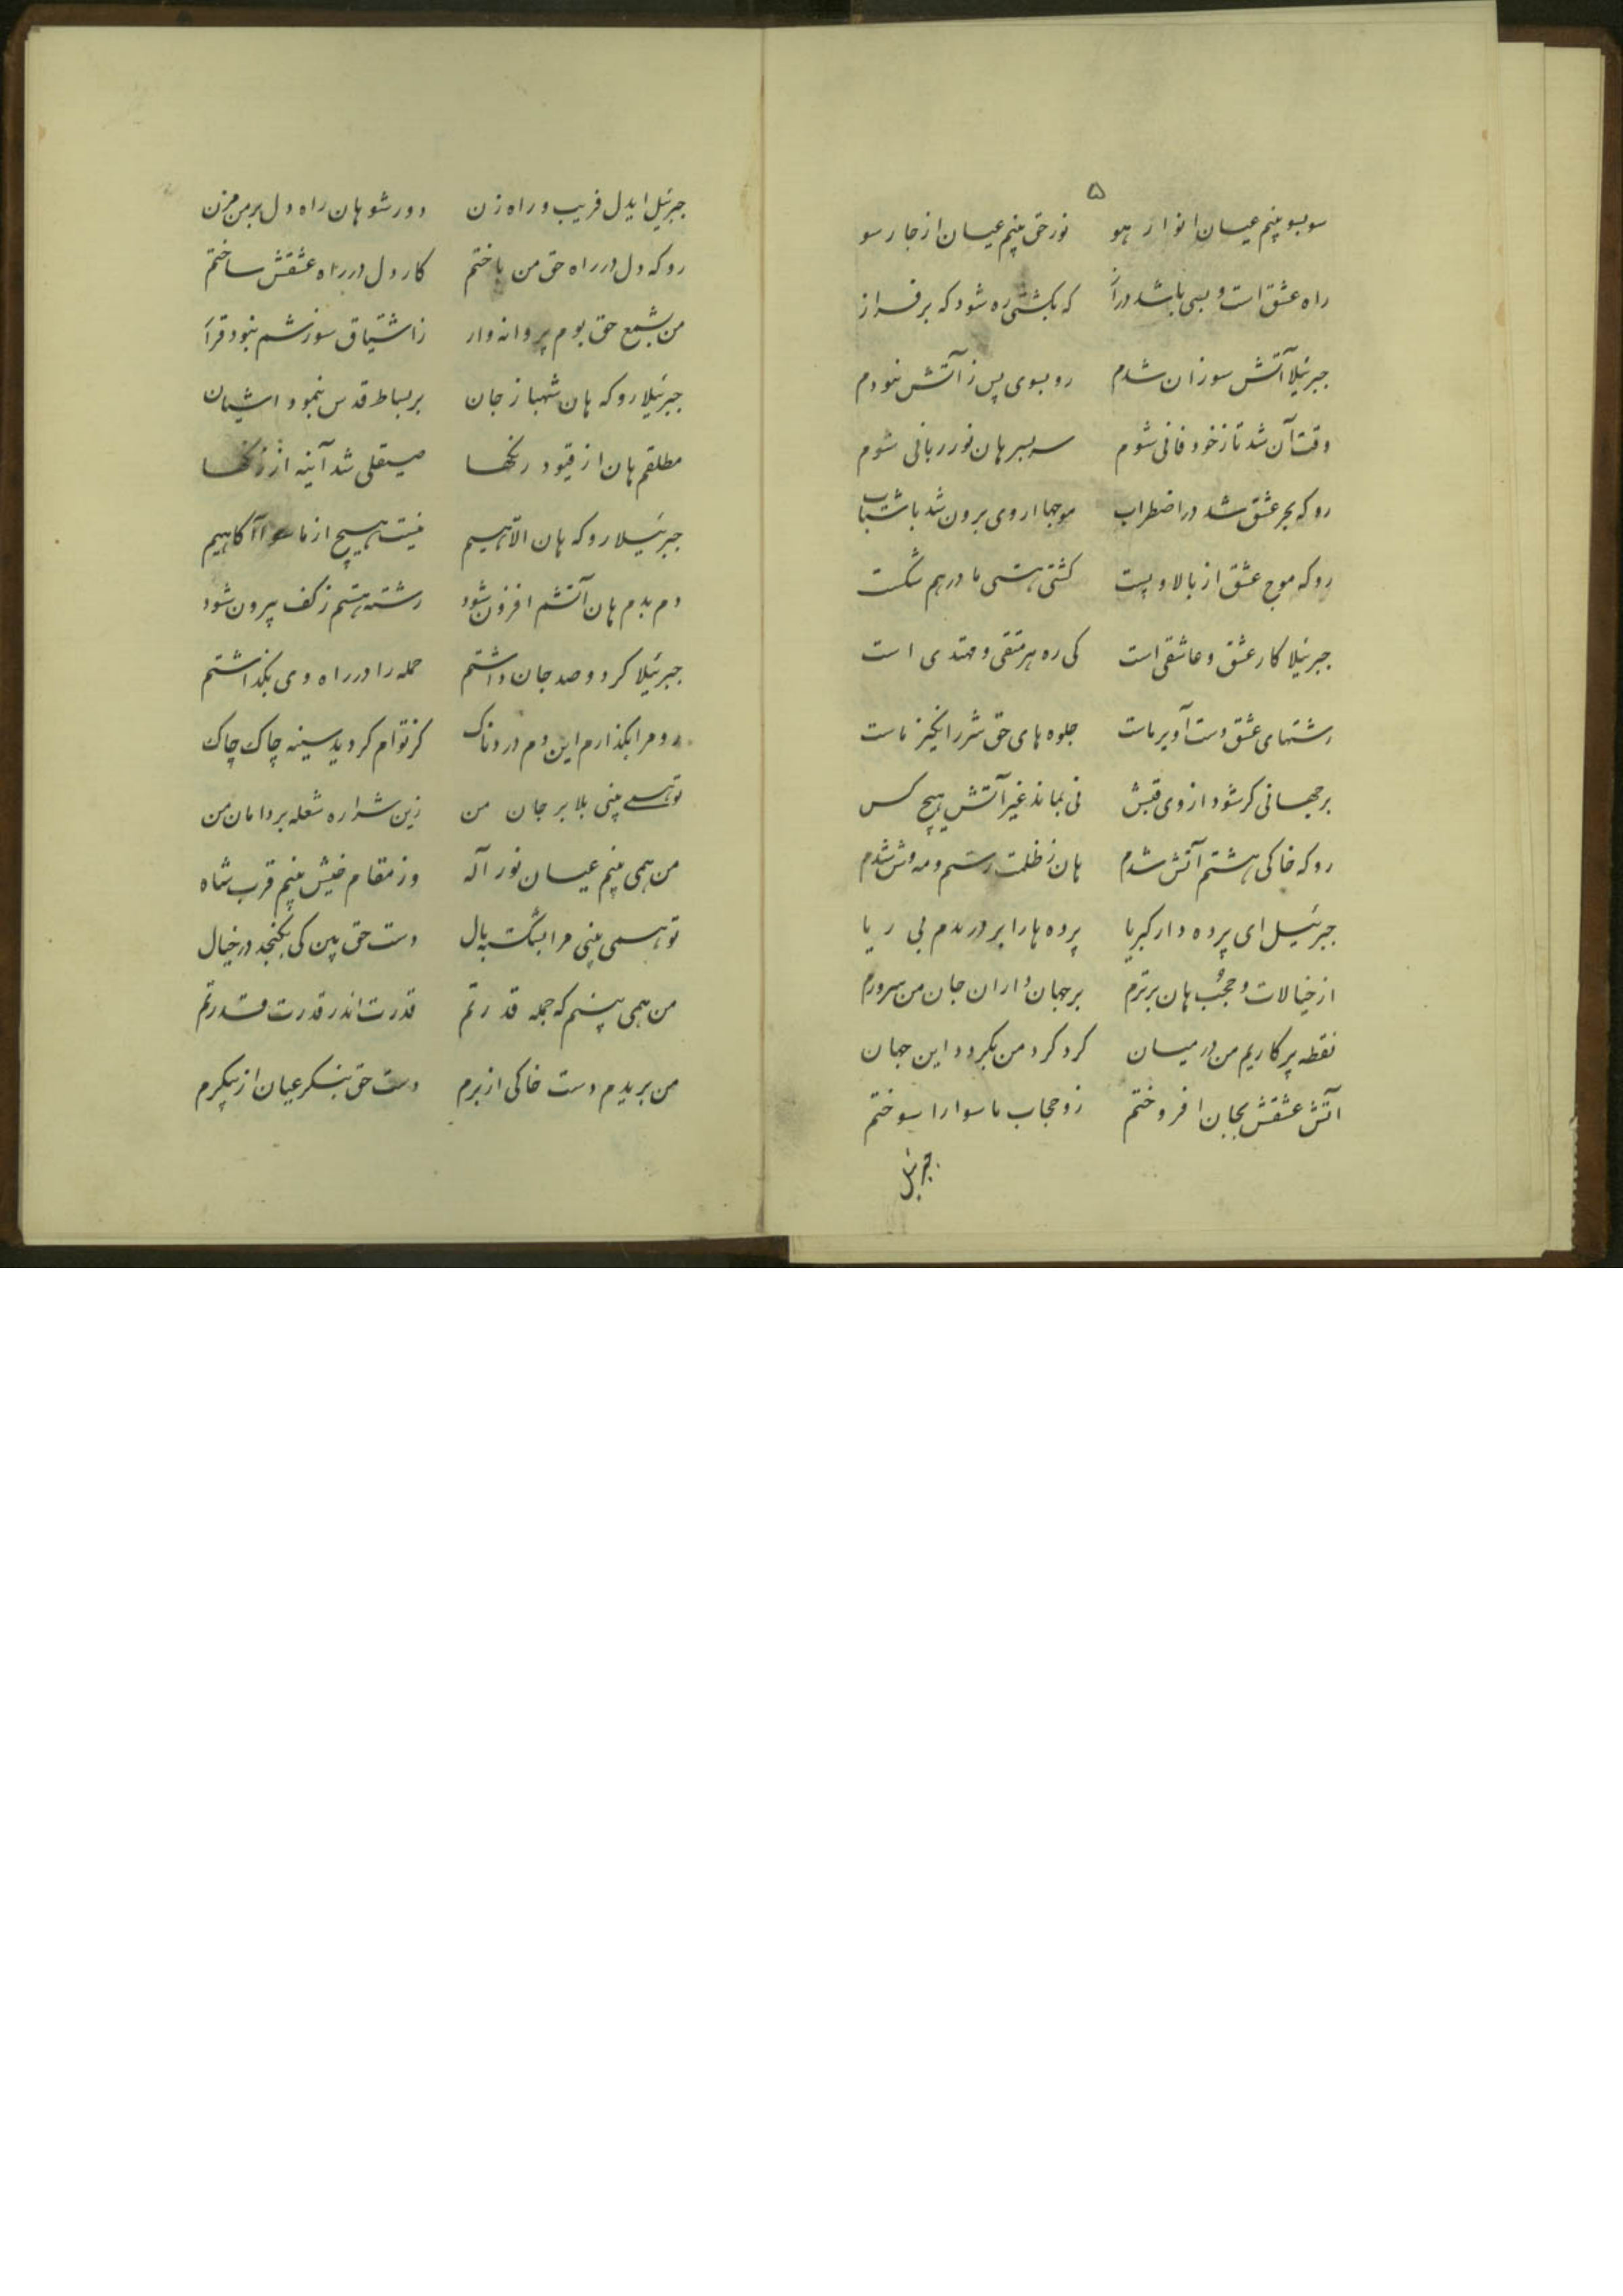 ۵
سوبسو بینم عیان انوار هو نور حق بینم عیان از چار سو
راه عشق است و بسی باشد دراز که بکشتی ره شود که بر فراز
جبرئیلا آتش سوزان شدم رو بسوی پس ز آتش نبودم
وقت آن شد تا ز خود فانی شوم سربسر هان نور ربانی شوم
رو که بحر عشق شد در اضطراب موجها از وی برون شد با شتاب
رو که موج عشق از بالا و پست کشتی هستی ما درهم شکست
جبرئیلا کار عشق و عاشقی است کی ره هر متقی و مهتدی است
رشتهای عشق دست آویر ماست جلوه های حق شرر انگیز ماست
بر جهانی کر شود از وی قبش نی بماند غیر آتش هیچ کس
رو که خاکی هشتم آتش شدم هان ز ظلمت رستم و مه وش شدم
جبرئیل ای پرده دار کبریا پرده ها را بر دریدم بی ریا
از خیالات و حجب هان برترم بر جهان داران جان من سرورم
نقطه پرکاریم من در میان کرد کرد من بکردد این جهان
آتش عشقش بجان افروختم زو حجاب ماسوا را سوختم
جبرئیل
جبرئیل ایدل فریب و راه زن دور شو هان راه دل بر من مزن
رو که دل در راه حق من باختم کار دل در راه عشقش ساختم
من بشمع حق بوم پروانه وار ز اشتیاق سوزشم نبود قرار
جبرئیلا رو که هان شهباز جان بر بساط قدس بنمود اشیان
مطلقم هان از قیود رنکها صیقلی شد آینه از زنکها
جبرئیلا رو که هان اللهیم نیست هیچ از ماسوا آکاهیم
دم بدم هان آتشم افزون شود رشته هستیم ز کف بیرون شود
جبرئیلا کر دو صد جان داشتم جمله را در راه وی بکذاشتم
رو مرا بکذارم این دم دردناک کز توام کردید سینه چاک چاک
تو همی بینی بلا بر جان من زین شراره شعله بر دامان من
من همی بینم عیان نور آله وز مقام خیش بینم قرب شاه
تو همی بینی مرا بشکسته بال دست حق بین کی بکنجد در خیال
من همی بینم که جمله قدرتم قدرت اندر قدرت قدرتم
من بریدم دست خاکی از برم دست حق بنکر عیان از پیکرم